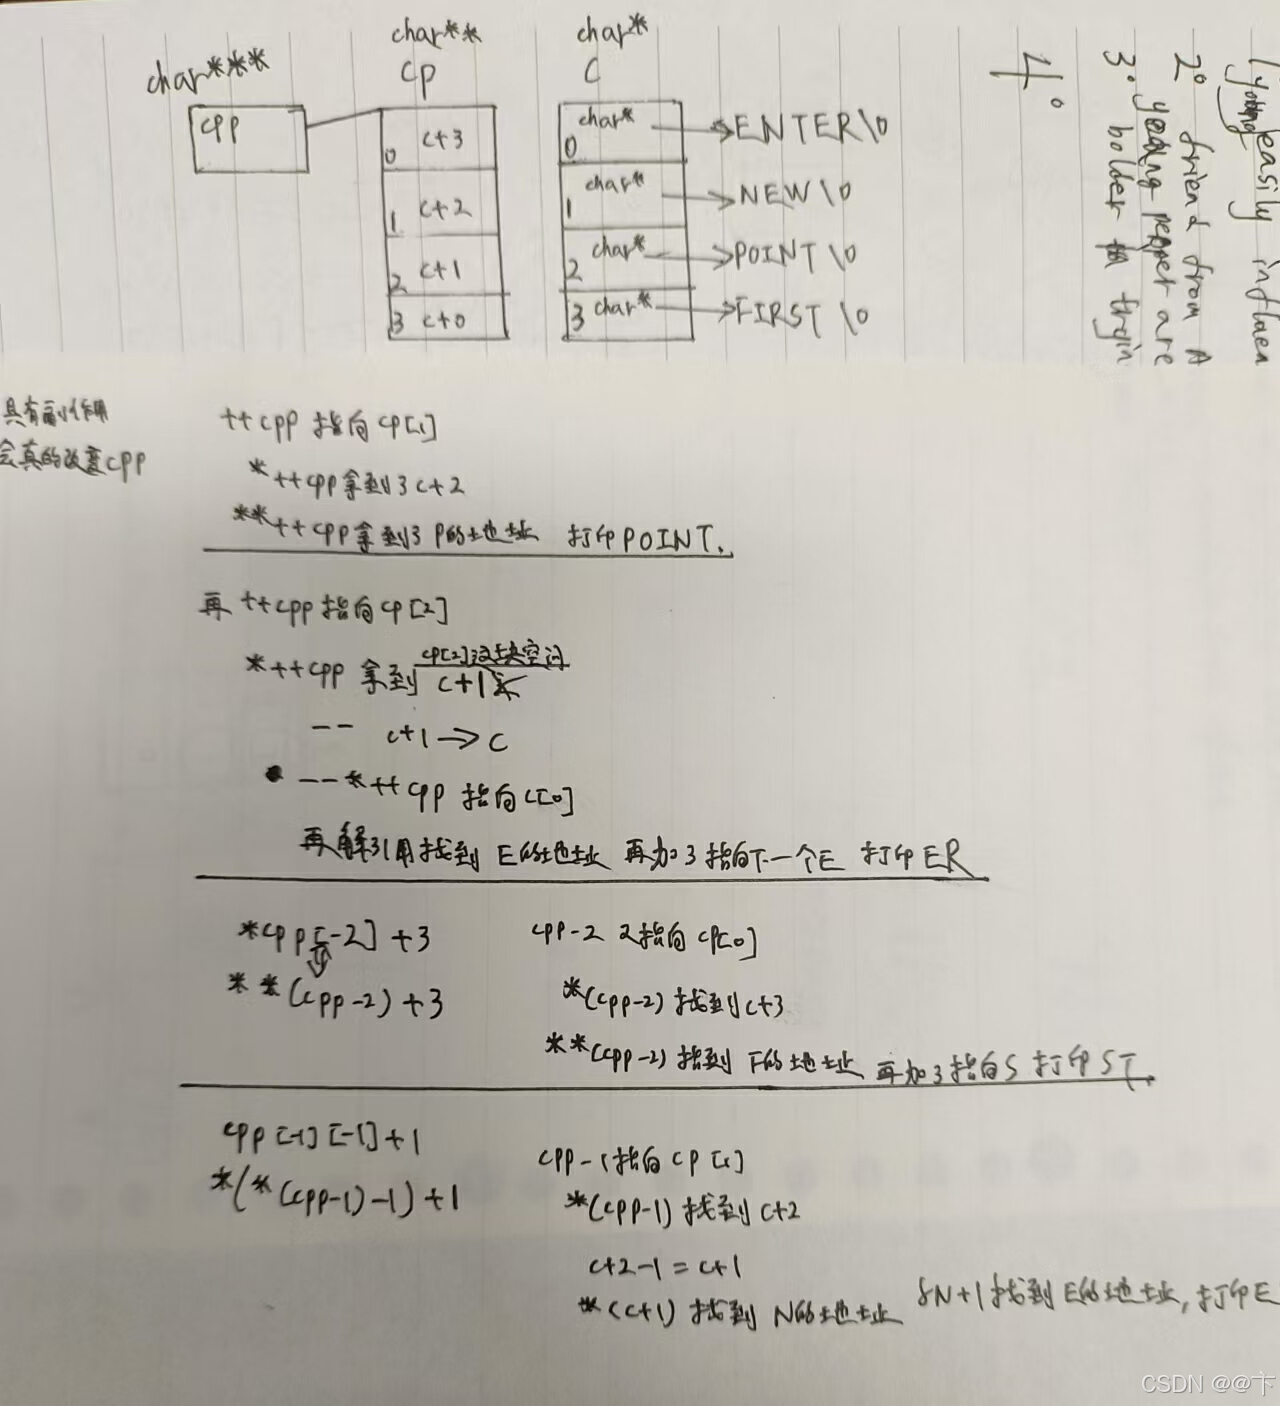 char***
char**
char*
cpp
cp
c
0 c+3
1 c+2
2 c+1
3 c+0
0 char* ENTER\0
1 char* NEW\0
2 char* POINT\0
3 char* FIRST\0
1 young easily
2° friend from A
young are
3° bolder
4°
具有副作用
会真的改变cpp
++cpp 指向cp[1]
*++cpp拿到了c+2
**++cpp拿到了P的地址 打印POINT.
再 ++cpp指向cp[2]
cp[2]这块空间
*++cpp 拿到 c+1
-- c+1→c
--*++cpp 指向c[0]
再解引用找到 E的地址 再加3指向下一个E 打印ER
*cpp[-2]+3
cpp-2 指向 cp[0]
**(cpp-2)+3
*(cpp-2)找到c+3
**(cpp-2)找到 F的地址 再加3指向S 打印ST.
cpp[-1][-1]+1
cpp-1指向cp[1]
*(*(cpp-1)-1)+1
*(cpp-1)找到c+2
c+2-1=c+1
*(c+1)找到N的地址 &N+1找到E的地址,打印E
CSDN @@卞